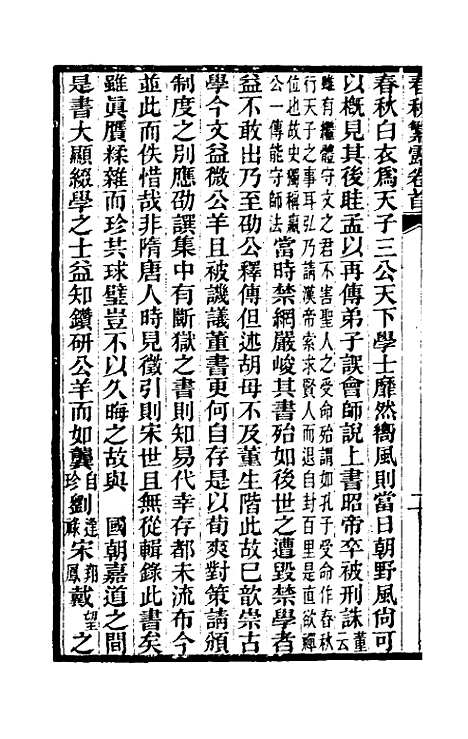 春秋繁露卷首
二
春秋白衣爲天子三公天下學士靡然嚮風則當日朝野風尚可
以槪見其後眭孟以再傳弟子誤會師說上書昭帝卒被刑誅董云
雖有繼體守文之君不害聖人之受命殆謂如孔子受命作春秋
行天子之事耳弘乃請漢帝索求賢人而退自封百里是直欲禪
位也故史獨稱嬴公一傳能守師法當時禁網嚴峻其書殆如後世之遭毀禁學者
益不敢出乃至劭公釋傳但述胡毋不及董生階此故巳歆崇古
學今文益微公羊且被譏議董書更何自存是以荀爽對策請頒
制度之別應劭譔集中有斷獄之書則知易代幸存都未流布今
並此而佚惜哉非隋唐人時見徵引則宋世且無從輯錄此書矣
雖眞贋糅雜而珍共球璧豈不以久晦之故與　國朝嘉道之間
是書大顯綴學之士益知鑽研公羊而如龔自珍劉逢祿宋翔鳳戴望之